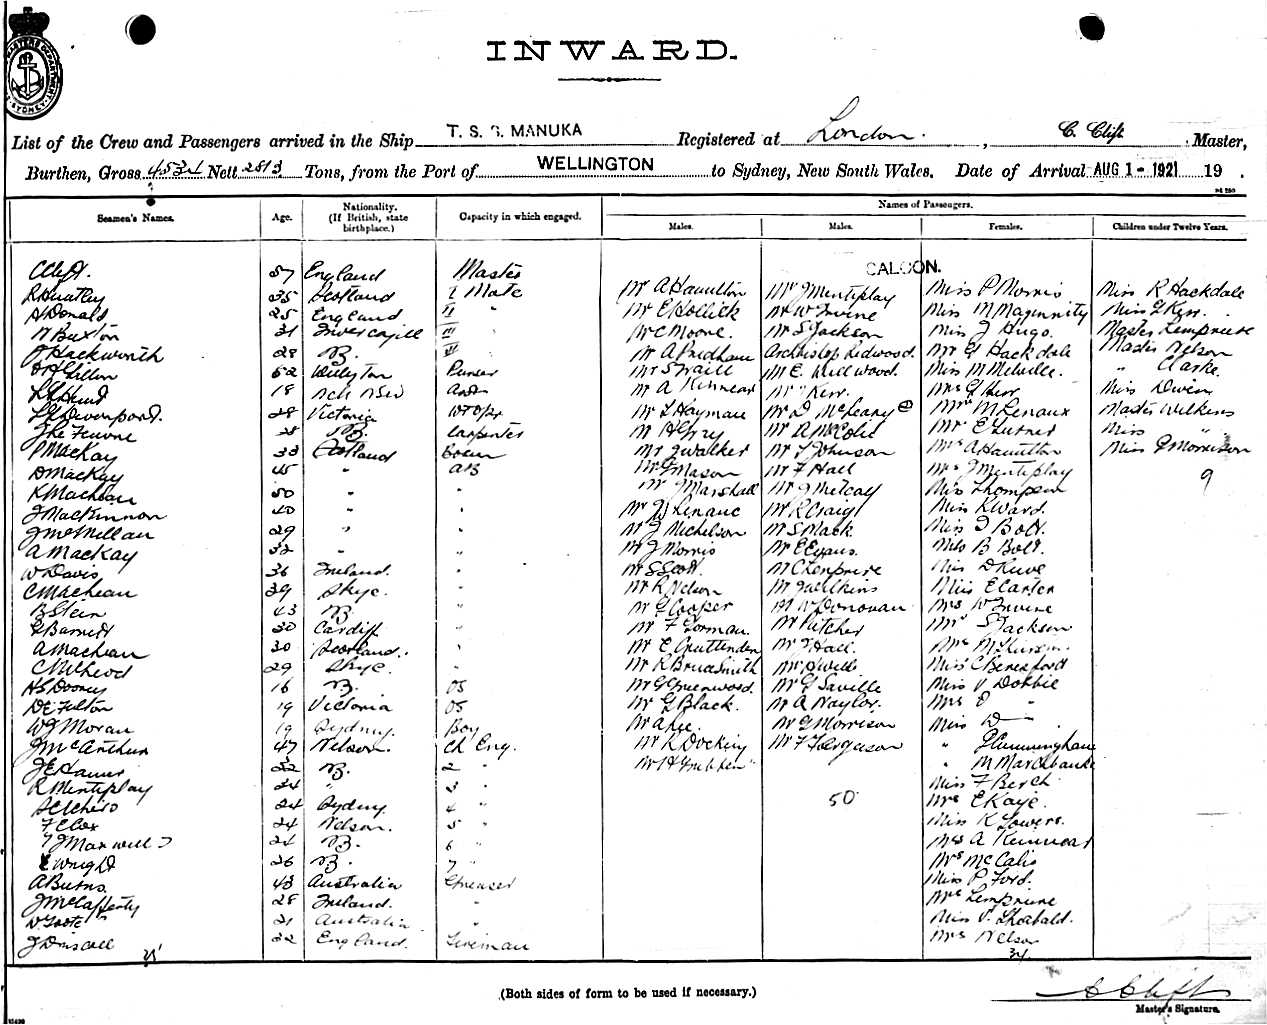 INWARD.
List of the Crew and Passengers arrived in the Ship T. S. S. MANUKA Registered at London. , C. Clift Master,
Burthen, Gross 4534 Nett 2813 Tons, from the Port of WELLINGTON to Sydney, New South Wales. Date of Arrival AUG 1 - 1921 19 .
Names of Passengers.
Seamen's Names. Age. Nationality. (If British, state birthplace.) Capacity in which engaged. Males. Males. Females. Children under Twelve Years.
SALOON.
C Clift. 57 England Master
R Huntley 35 Scotland I Mate Mr A Hamilton Mr J Mentiplay Miss P Morris Miss R Hackdale
A Donald 25 England II " Mr E Hollick Mr W Irvine Miss M Maginnity Miss G Kerr.
N Buxton 31 Invercargill III " Mr C Moore. Mr S Jackson Miss J Hugo. Master Lempriere
J Hackworth 28 NZ. IV " Mr A Prudham Archbishop Redwood. Mr G Hackdale Master Nelson
52 Purser Mr E Wellwood Miss M Melville. " Clarke
18 Mr A Kinnear Mr " Kerr. Mrs G Kerr Miss Owen
L Devenport. 28 Victoria Mr L Hayman Mr D McLeary Mrs M Lenaux Master Wilkins
28 NZ. Carpenter Mr A McColl Mr E Turner Miss "
P MacKay 33 Scotland Mr J Walker Mr T Johnson Mrs A Hamilton Miss G Morrison
D MacKay 45 " AB Mr G Mason Mr F Hall Mrs J Mentiplay 9
K MacLean 50 " " Mr J Marshall Mr J Metcalf Miss Thompson
J MacKinnon 40 " " Mr R Craig Miss K Ward.
J McMillan 29 " " Mr J Michelson Mr S Mack. Miss J Bolt.
A MacKay 32 " " Mr J Morris Mr E Evans. Miss B Bolt.
W Davis 36 Ireland. " Mr S Scott. Mr C Lempriere Miss D Ruwe
C MacLean 39 Skye. " Mr R Nelson Mr J Wilkins Miss E Carter
B Stein 43 NZ. " Mr G Cooper Mr W Donovan Mrs W Irvine
G Barnett 30 Cardiff " Mr F Gorman. Mr Pitcher Mrs S Jackson
A MacLean 30 Scotland. " Mr E Cruttenden Mr J Hall.
C McLeod 29 Skye. " Mr R Bruce Smith Mr H Wells Miss C Beresford
H S Dooney 16 NZ. OS Mr G Greenwood. Mr G Saville Miss V Dobbie
D E Fulton 19 Victoria OS Mr G Black. Mr A Naylor. Mrs E "
W J Moran 19 Sydney. Boy Mr G Morrison Miss D "
J McArthur 47 Nelson. Ch Eng. Mr R Docking Mr F Ferguson " P Cunningham
J E Hamer 32 NZ. 2 " " M Marchbanks
R Mentiplay 24 " 3 " Miss F Berch
24 Sydney 4 " 50 Mrs E Kaye.
F C Cox 24 Nelson. 5 " Miss K Towers.
J Maxwell 24 NZ. 6 " Mrs A Kinnear
E Wright 26 NZ. 7 " Mrs McCalis
A Burns 43 Australia Greaser Miss P Ford.
J McCafferty 28 Ireland. " Mrs Lempriere
D Foote 21 Australia " Miss V. Theobald.
J Driscoll 22 England. Fireman Mrs Nelson
34
(Both sides of form to be used if necessary.) C Clift
Master's Signature.